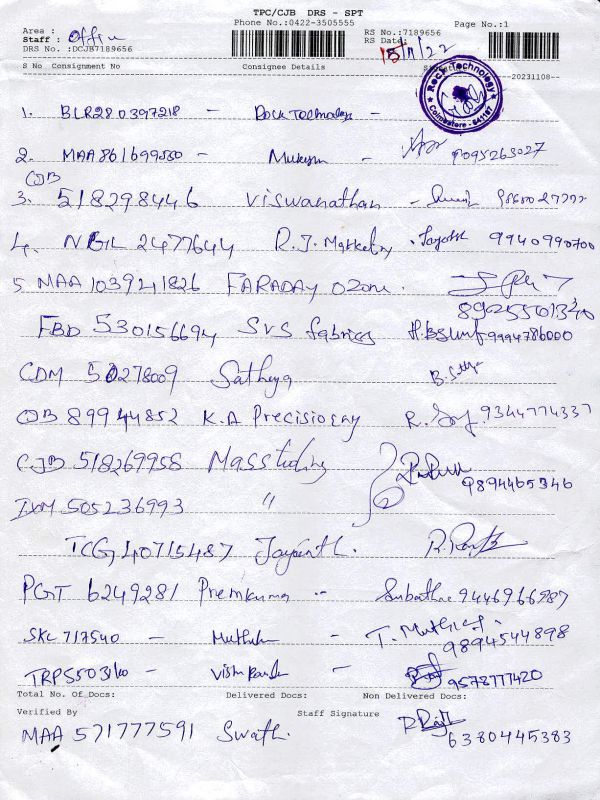 TPC/CJB DRS - SPT
Phone No.:0422-3505555
Area :
Staff : Office
DRS No.:DCJB7189656
RS No.:7189656
RS Date: 15/11/22
Page No.:1
S No Consignment No Consignee Details
20231108--
Rock Technology
Coimbatore - 641197
1. BLR280397218 - Rock Technology -
2. MAA861699580 - Mukesh - 9095263027
COB
3. 518298446 Viswanathan -
4. NGL 2477644 R.J. Marketing . Jayanth 9940990700
5 MAA 103941826 FARADAY OZONE.
8925501340
FBD 530156694 SVS fabrics 9994786000
CDM 50278009 Sathya B. Sathya
COB 89944852 K.A Precision 9344774337
CJB 518269958 Masstrading
9894465346
IXM 505236993 "
TCG 40715487 Jayanth.
PGT 6249281 Premkumar -- 9446966987
SKL 717540 - T. Muthu
9894544898
TRP55031100 - 9578777420
Total No. Of Docs: Delivered Docs: Non Delivered Docs:
Verified By Staff Signature
MAA 571777591 Swath.
6380445383